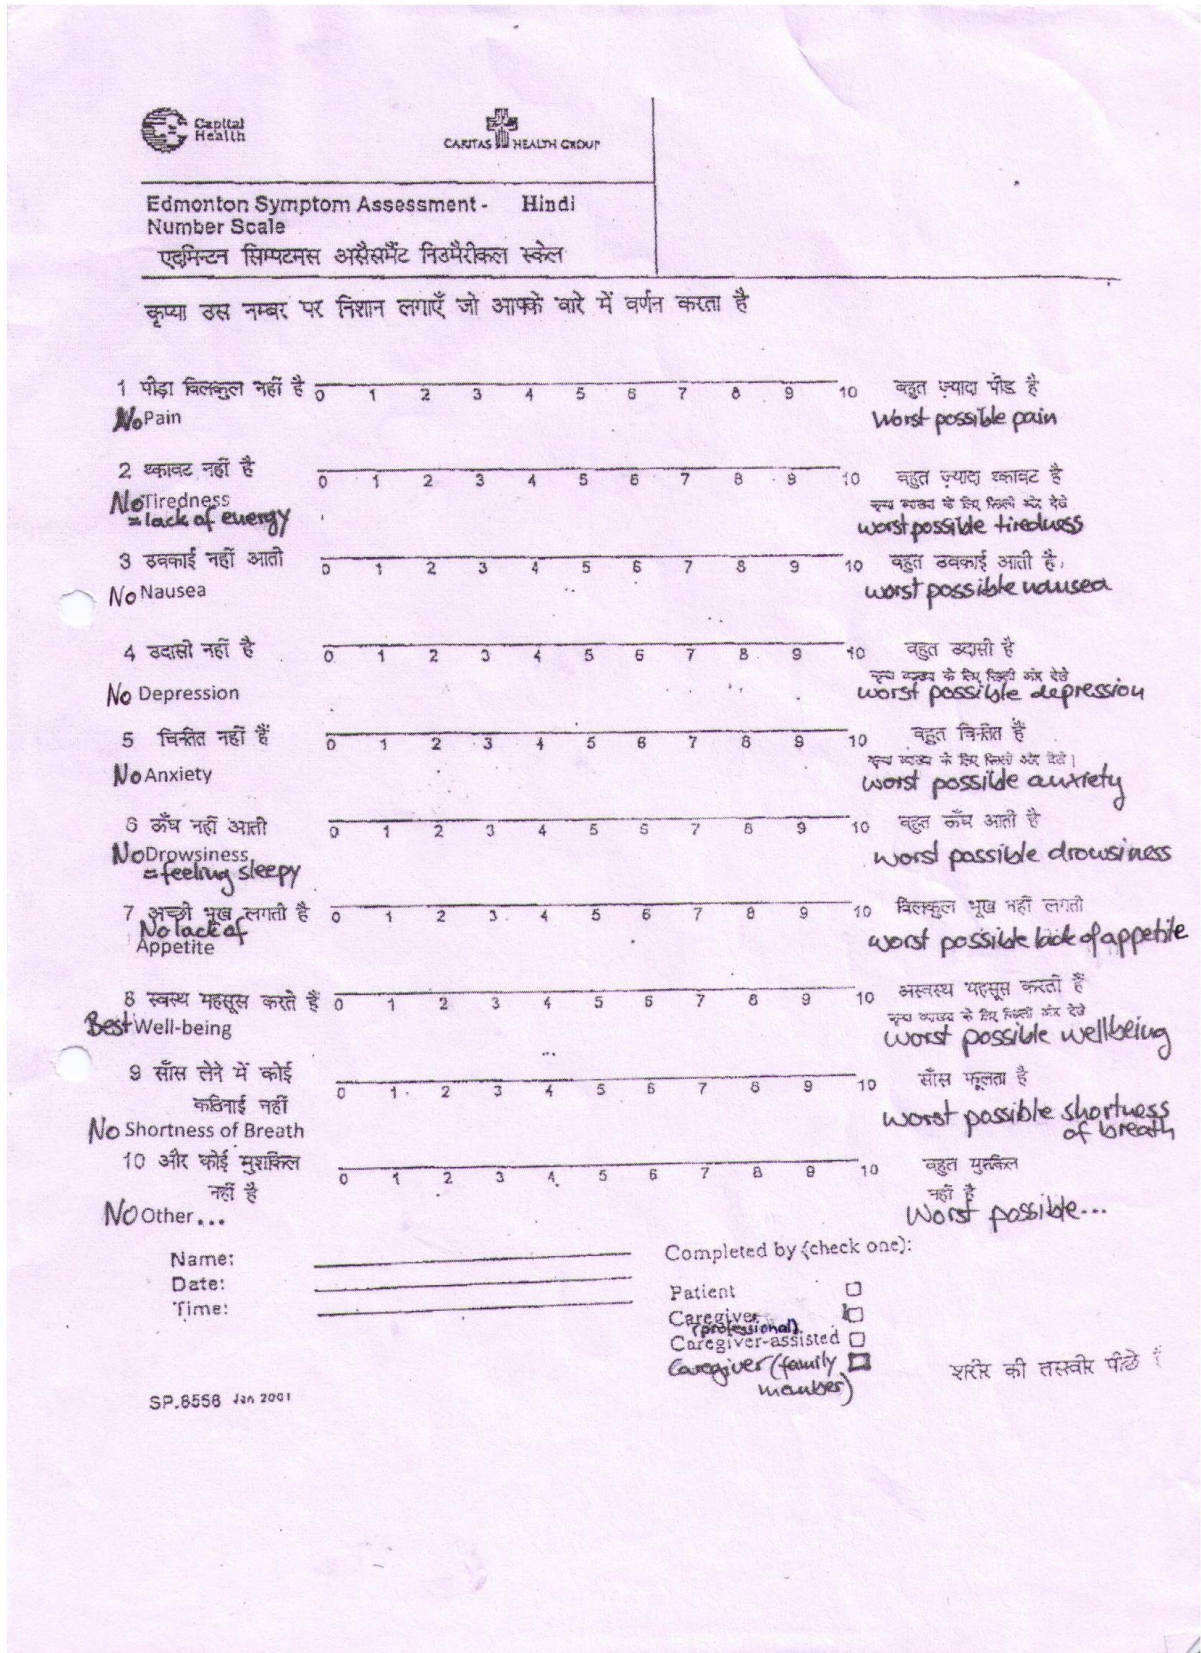 Capital
Health
CARITAS HEALTH GROUP
Edmonton Symptom Assessment - Hindi
Number Scale
एदमिन्टन सिम्पटमस असैसमैंट निउमैरीकल स्केल
कृप्या उस नम्बर पर निशान लगाएँ जो आपके बारे में वर्णन करता है
1 पीड़ा बिलकुल नहीं है 0 1 2 3 4 5 6 7 8 9 10 बहुत ज़्यादा पीड है
No Pain Worst possible pain
2 थ्कावट नहीं है 0 1 2 3 4 5 6 7 8 9 10 बहुत ज़्यादा थ्कावट है
No Tiredness के लिए देखे
= lack of energy worst possible tiredness
3 उबकाई नहीं आती 0 1 2 3 4 5 6 7 8 9 10 बहुत उबकाई आती है
No Nausea worst possible nausea
4 उदासी नहीं है 0 1 2 3 4 5 6 7 8 9 10 बहुत उदासी है
के लिए देखे
No Depression worst possible depression
5 चिन्तित नहीं हैं 0 1 2 3 4 5 6 7 8 9 10 बहुत चिन्तित हैं
के लिए देखे।
No Anxiety worst possible anxiety
6 ऊँघ नहीं आती 0 1 2 3 4 5 6 7 8 9 10 बहुत ऊँघ आती है
No Drowsiness worst possible drowsiness
= feeling sleepy
7 अच्छी भूख लगती है 0 1 2 3 4 5 6 7 8 9 10 बिलकुल भूख नहीं लगती
No lack of
Appetite worst possible lack of appetite
8 स्वस्थ महसूस करते हैं 0 1 2 3 4 5 6 7 8 9 10 अस्वस्थ महसूस करती हैं
के लिए देखे
Best Well-being worst possible wellbeing
9 साँस लेने में कोई 0 1 2 3 4 5 6 7 8 9 10 साँस फूलता है
कठिनाई नहीं
No Shortness of Breath worst possible shortness
of breath
10 और कोई मुशकिल 0 1 2 3 4 5 6 7 8 9 10 बहुत मुश्किल
नहीं है नहीं है
No Other... Worst possible...
Name: Completed by (check one):
Date:
Time:
Patient
Caregiver
(professional)
Caregiver-assisted
Caregiver (family
member)
शरीर की तस्वीर पीछे है
SP.8556 Jan 2001